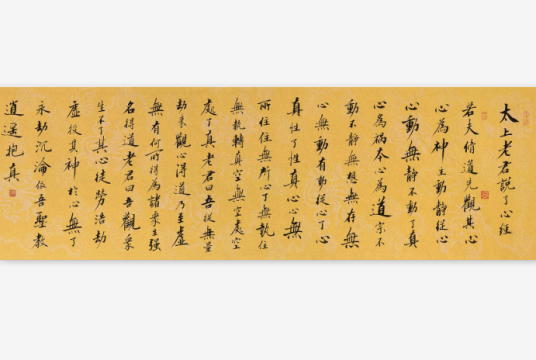 太上老君說了心經
若夫脩道先觀其心
心為神主動靜從心
心動無靜不動了真
心為禍本心為道宗不
動不靜無想無存無
心無動有動從心了心
真性了性真心心無
所住住無所心了無執住
無執轉真空無空處空
處了真老君曰吾從無量
劫來觀心得道乃至虛
無有何所得為諸衆生强
名得道老君曰吾觀衆
生不了其心徒勞浩劫
虛役其神於心無了
永劫沉淪依吾聖教
逍遙抱真